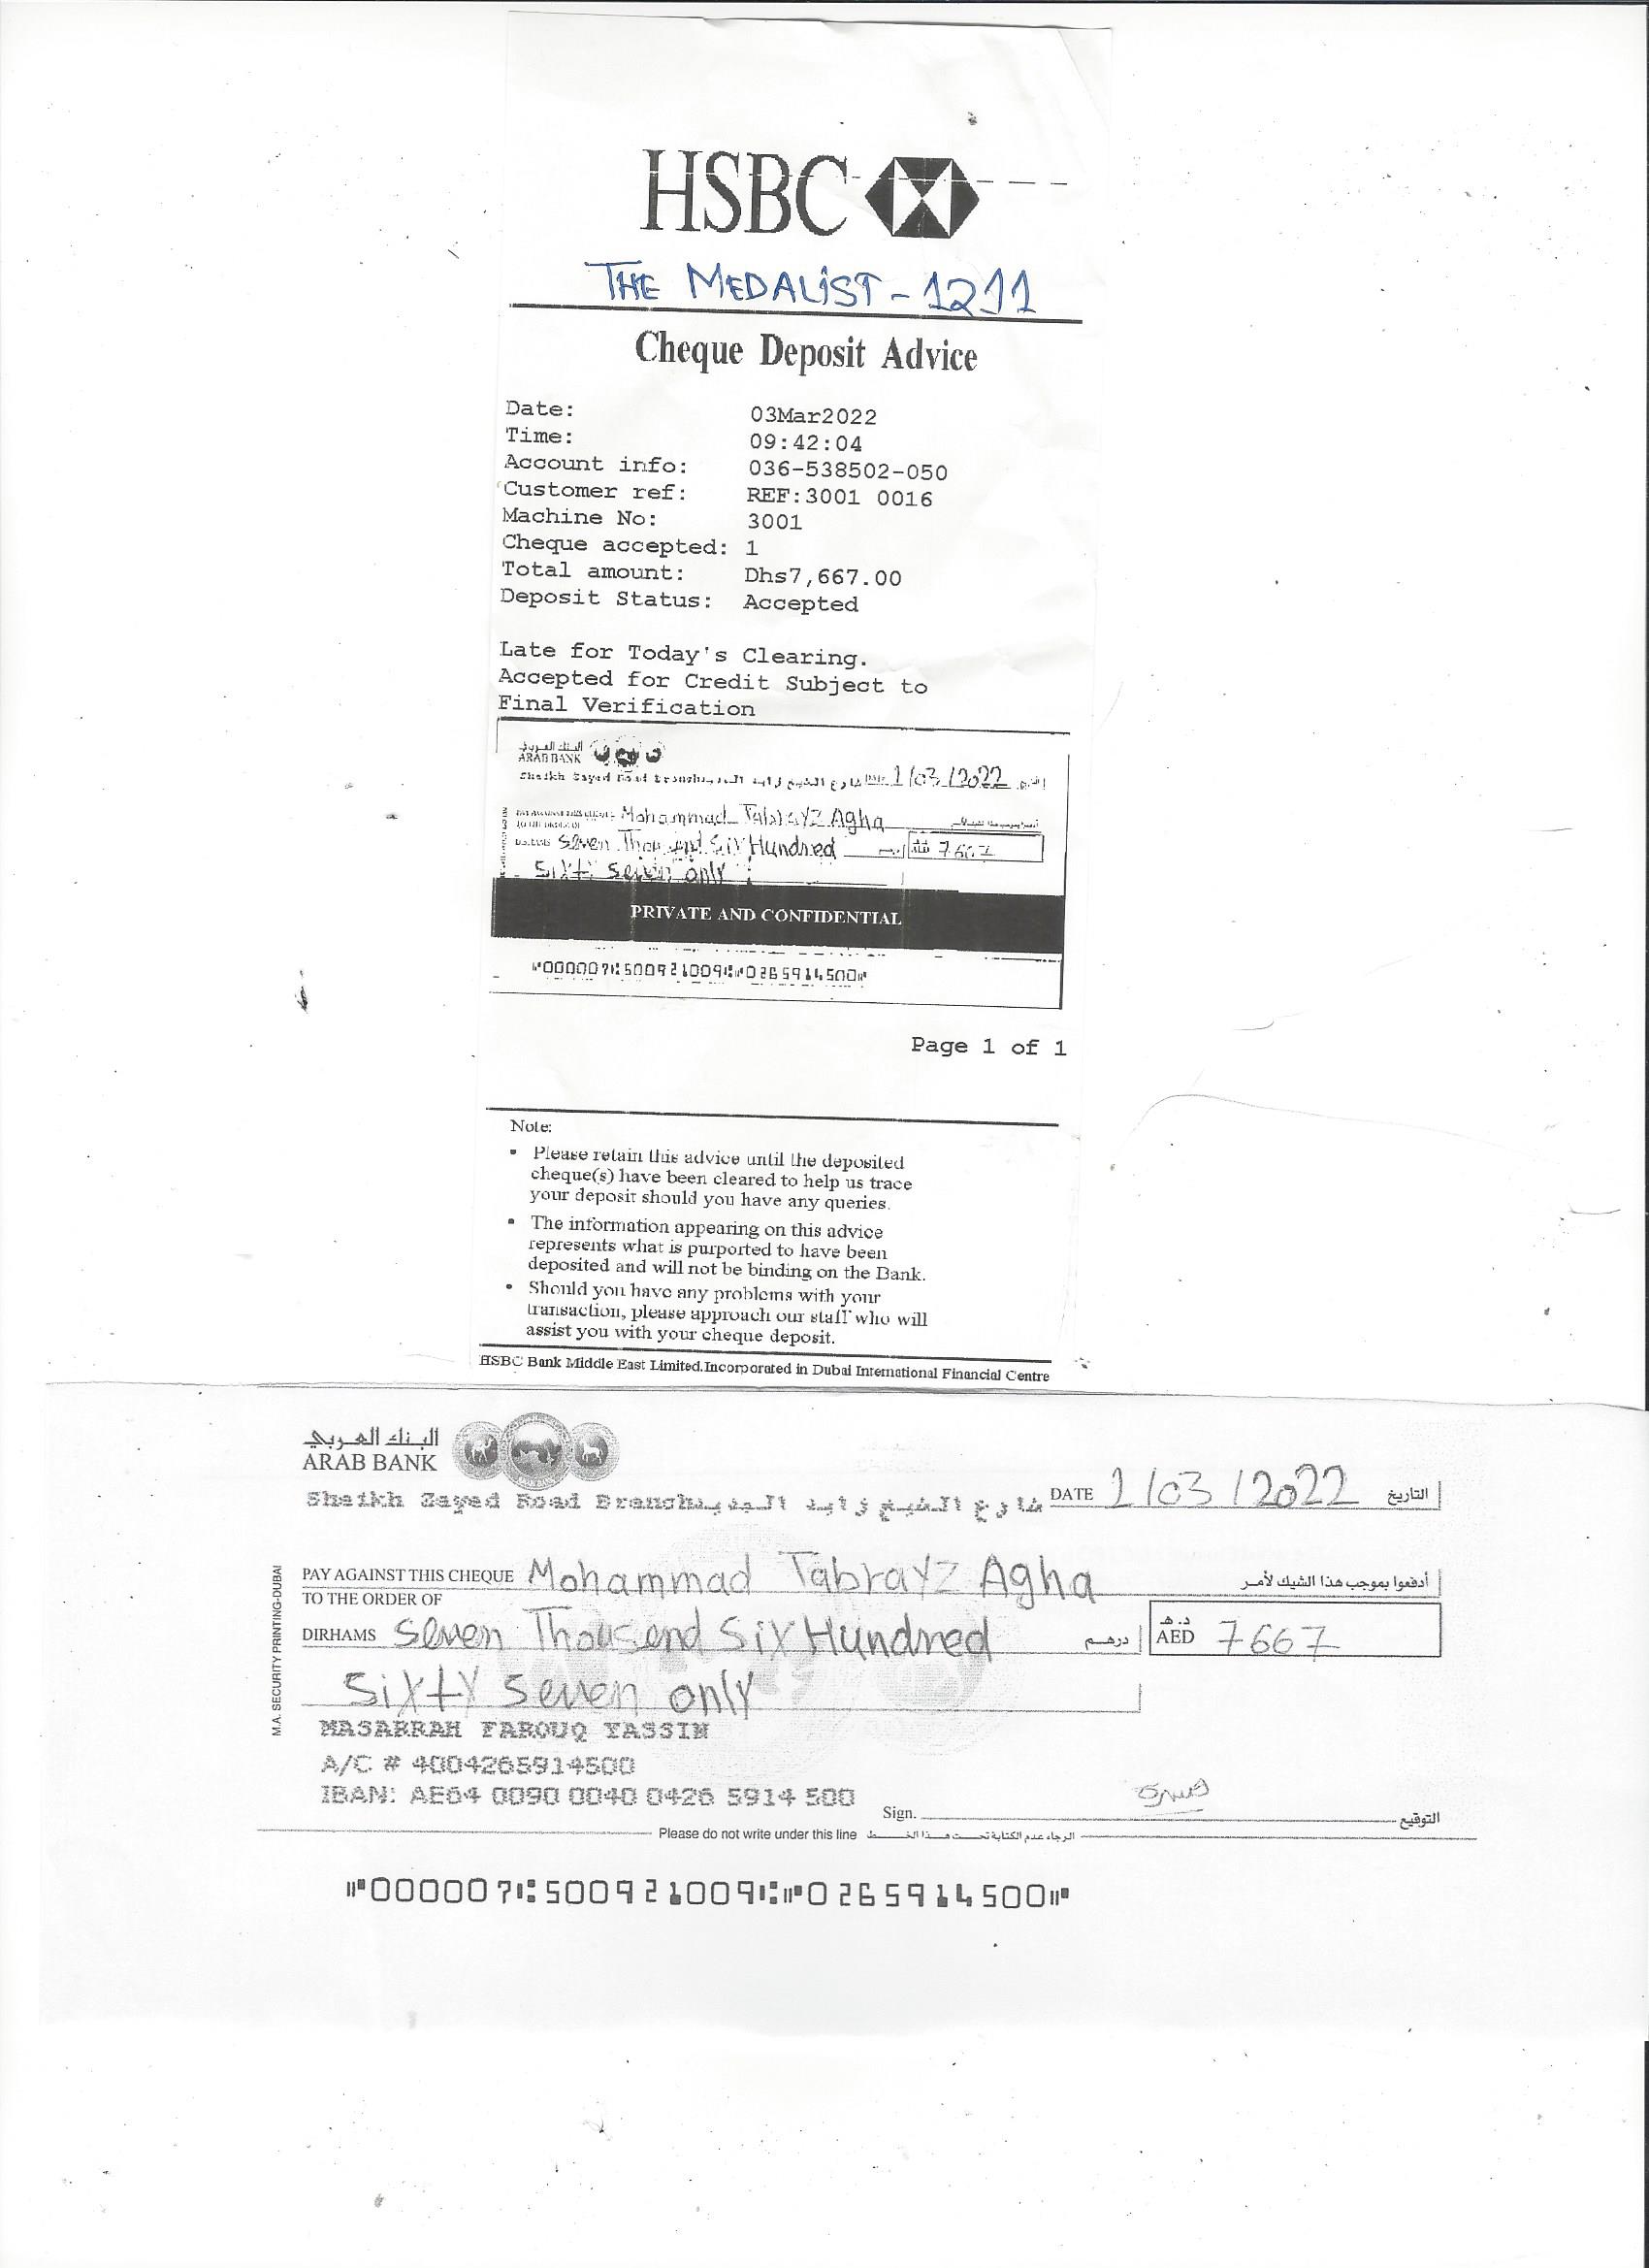 HSBC
THE MEDALIST - 1211
Cheque Deposit Advice
Date: 03Mar2022
Time: 09:42:04
Account info: 036-538502-050
Customer ref: REF:3001 0016
Machine No: 3001
Cheque accepted: 1
Total amount: Dhs7,667.00
Deposit Status: Accepted
Late for Today's Clearing.
Accepted for Credit Subject to
Final Verification
البنك العربي
ARAB BANK
Sheikh Zayed Road Branch شارع الشيخ زايد 1/03/2022
Mohammad Tabrayz Agha
Seven Thousand Six Hundred 7667
Sixty Seven only
PRIVATE AND CONFIDENTIAL
⑈000007⑆500921009⑆⑈0265914500⑈
Page 1 of 1
Note:
• Please retain this advice until the deposited
cheque(s) have been cleared to help us trace
your deposit should you have any queries.
• The information appearing on this advice
represents what is purported to have been
deposited and will not be binding on the Bank.
• Should you have any problems with your
transaction, please approach our staff who will
assist you with your cheque deposit.
HSBC Bank Middle East Limited.Incorporated in Dubai International Financial Centre
البنك العربي
ARAB BANK
Sheikh Zayed Road Branch شارع الشيخ زايد
DATE 1/03/2022 التاريخ
M.A. SECURITY PRINTING-DUBAI
PAY AGAINST THIS CHEQUE Mohammad Tabrayz Agha أدفعوا بموجب هذا الشيك لأمر
TO THE ORDER OF
DIRHAMS Seven Thousand Six Hundred درهم د.هـ AED 7667
Sixty Seven only
MASARRAH FAROUQ YASSIN
A/C # 4004265914500
IBAN: AE64 0090 0040 0426 5914 500
Sign. التوقيع
Please do not write under this line الرجاء عدم الكتابة تحت هذا الخط
⑈000007⑆500921009⑆⑈0265914500⑈